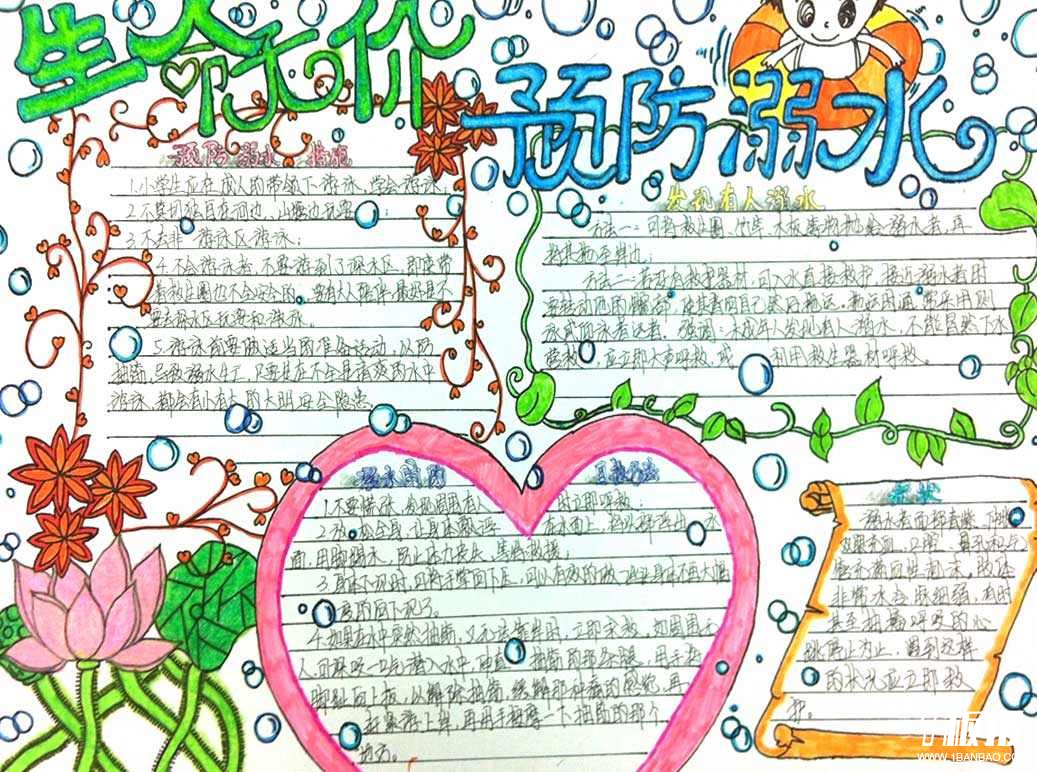 生命无价
预防溺水
预防溺水 措施
1.小学生应在成人的带领下游泳,学会游泳
2.不要独自在河边、山塘边玩耍;
3.不去非 游泳区游泳;
4.不会游泳者,不要游到了深水区,即使带
着救生圈也不安全的。
要去深水区玩耍和游泳。
5.游泳前要做适当的准备运动,以防
抽筋
游泳
发现有人溺水
方法一:可将救生圈、竹竿、木板等物抛给溺水者,再
将其拖至岸边;
方法二:若没有救护器材,可入水直接救护。接近溺水者时
要转动他的髋部,使其背向自己然后拖运。拖运时通常采用侧
泳或仰泳拖运法。强调:未成年人发现有人溺水,不能冒然下水
营救 应立即大声呼救,或 利用救生器材呼救。
溺水时的
自救方法
1.不要慌张,发现周围有人 时立即呼救;
2.放松全身,让身体飘浮 在水面上,将头部浮出 水
面,用脚踢水,防止体力丧失,等待救援;
3.身体下沉时,可将手掌向下压
4.如果在水中突然抽筋,又无法靠岸时,立即求救。如周围无
人,可深吸一口气潜入水中,伸直 抽筋的那条腿,用手
脚趾向上扳,以解除抽筋。
再用手按摩一下抽筋的那个
地方。
症状
溺水者面部青紫、
充血,口、
充满血性泡沫,肢体
非常冰冷,脉细弱,有时
甚至抽搐,呼吸的心
跳停止为止,遇到这样
的状况应立即救
护。
WWW.1BANBAO.COM